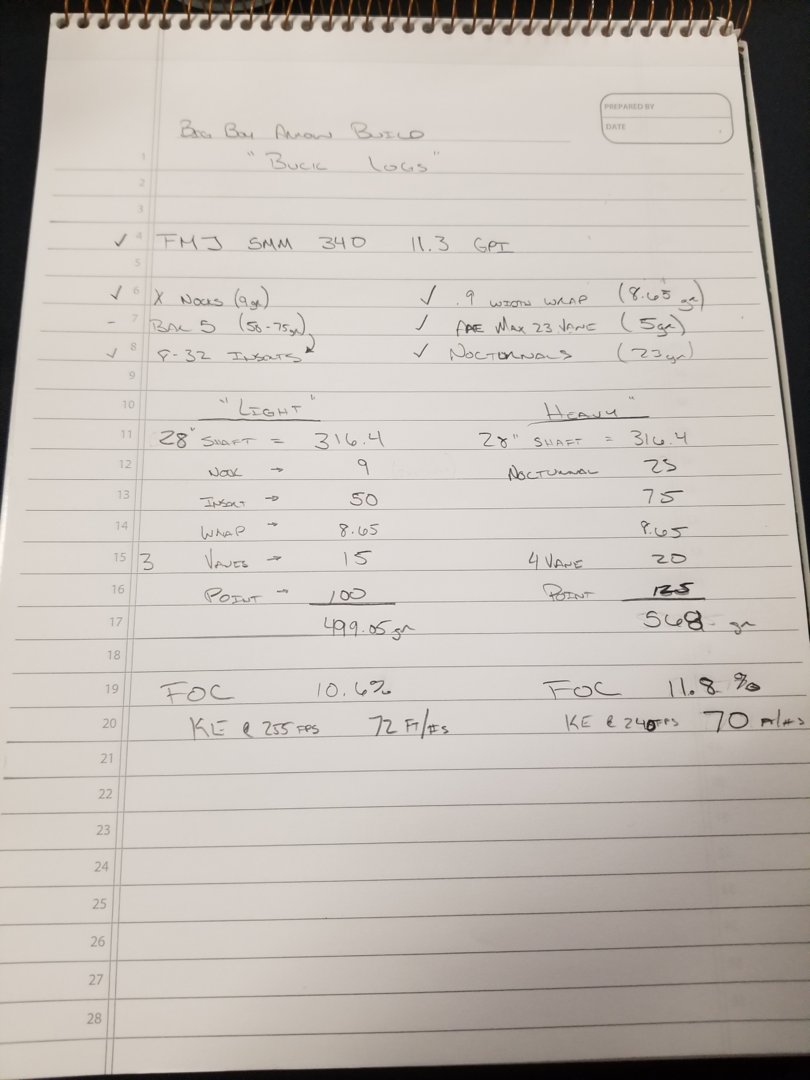 PREPARED BY
DATE
Big Boy Arrow Build
"Buck Logs"
1
2
3
4 ✓ FMJ 5MM 340 11.3 GPI
5
6 ✓ X Nocks (9gr) ✓ .9 width wrap (8.65 gr)
7 - (50-75gr) ✓ Max 23 Vane (5gr)
8 ✓ 8-32 Inserts ✓ Nocturnals (23gr)
9
10 "Light" Heavy"
11 28" Shaft = 316.4 28" Shaft = 316.4
12 Nock → 9 Nocturnal 23
13 Insert → 50 75
14 Wrap → 8.65 8.65
15 3 Vanes → 15 4 Vane 20
16 Point → 100 Point 125
17 499.05 gr 568 gr
18
19 FOC 10.6% FOC 11.8 %
20 KE @ 255 FPS 72 FT/#s KE @ 240 FPS 70 FT/#s
21
22
23
24
25
26
27
28